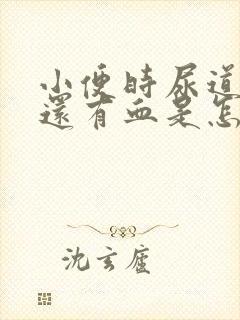 小便時尿道
還有血是怎
沈玄廬